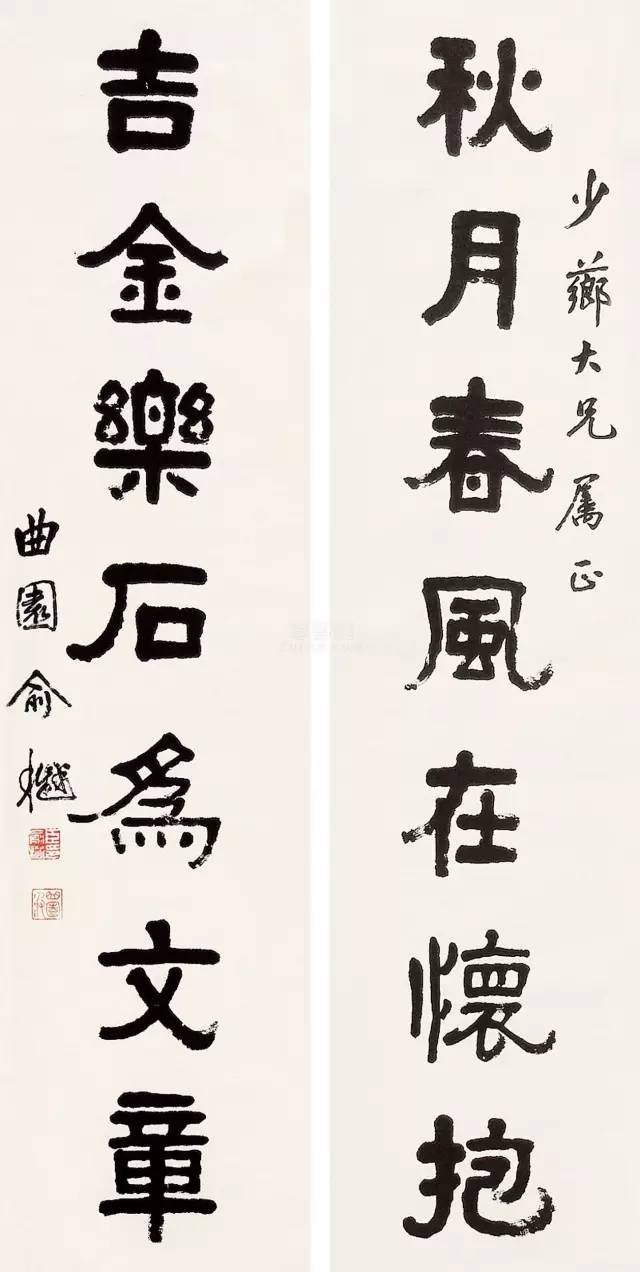 少薌大兄属正
秋月春風在懷抱
吉金樂石為文章
曲園俞樾